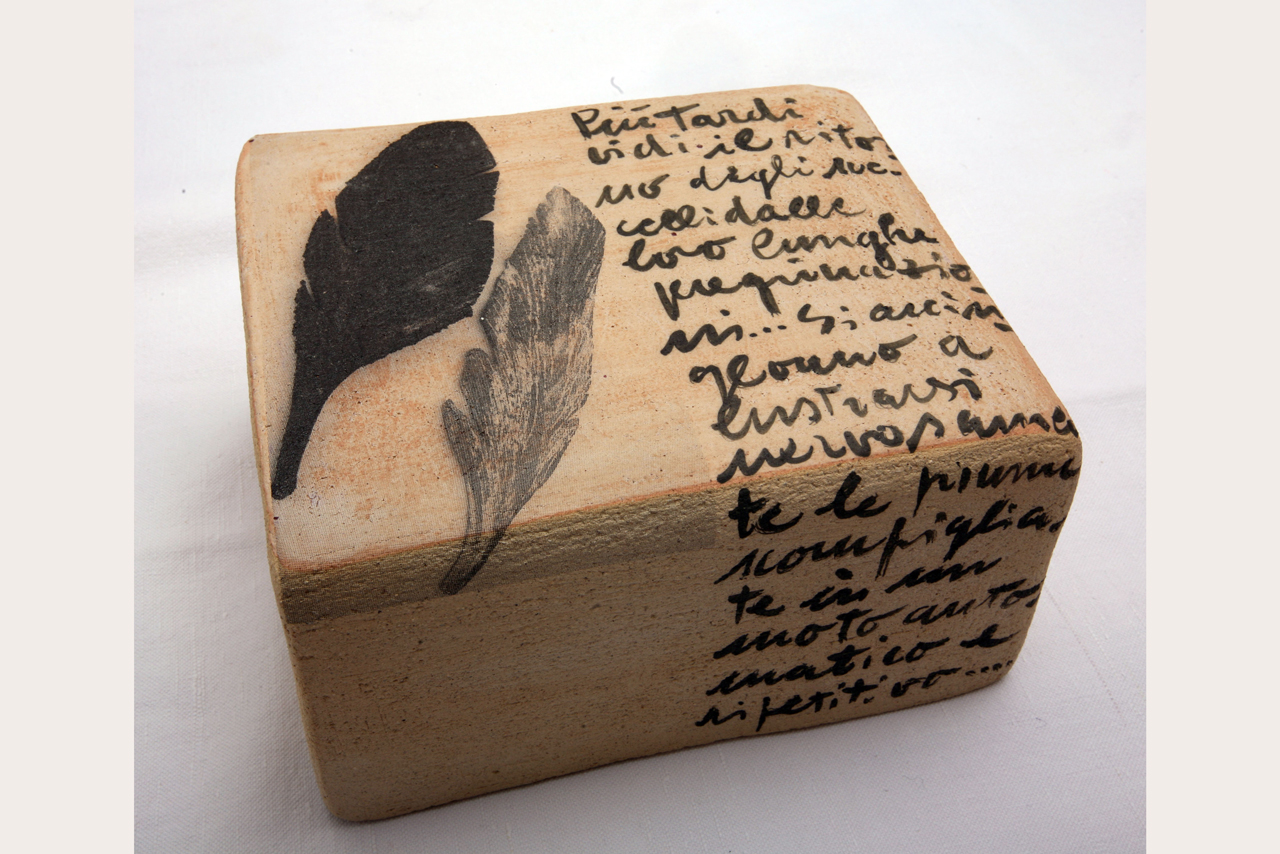 Più tardi
vidi il ritor
no degli uc-
celli dalle
loro lunghe
peregrinazio
ni... Si accin
geranno a
lustrarsi
nervosame
te le piume
scompiglia-
te in un
moto auto-
matico e
ripetitivo....